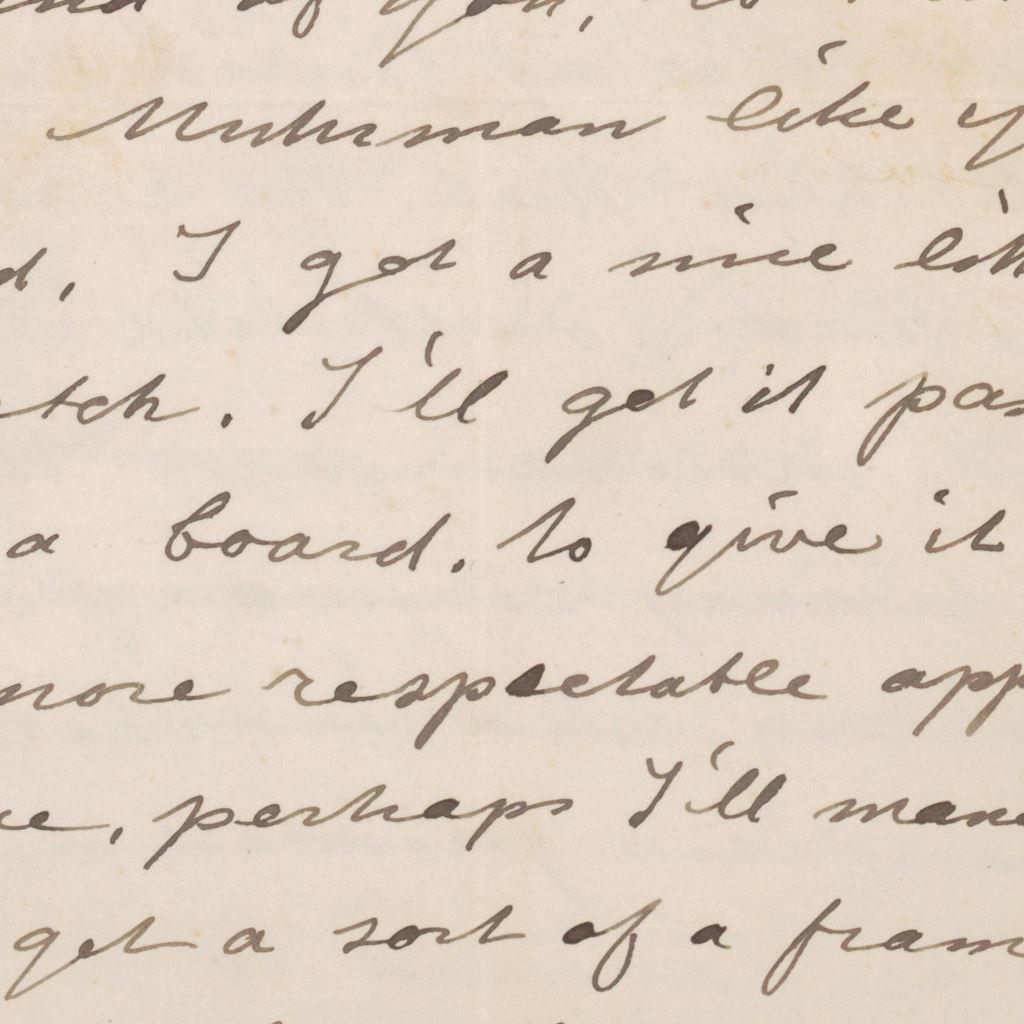 of you,
Muhrman like y
d, I got a nice lik
etch. I'll get it pas
a board. to give it
more respectable app
ce, perhaps I'll mana
get a sort of a fram